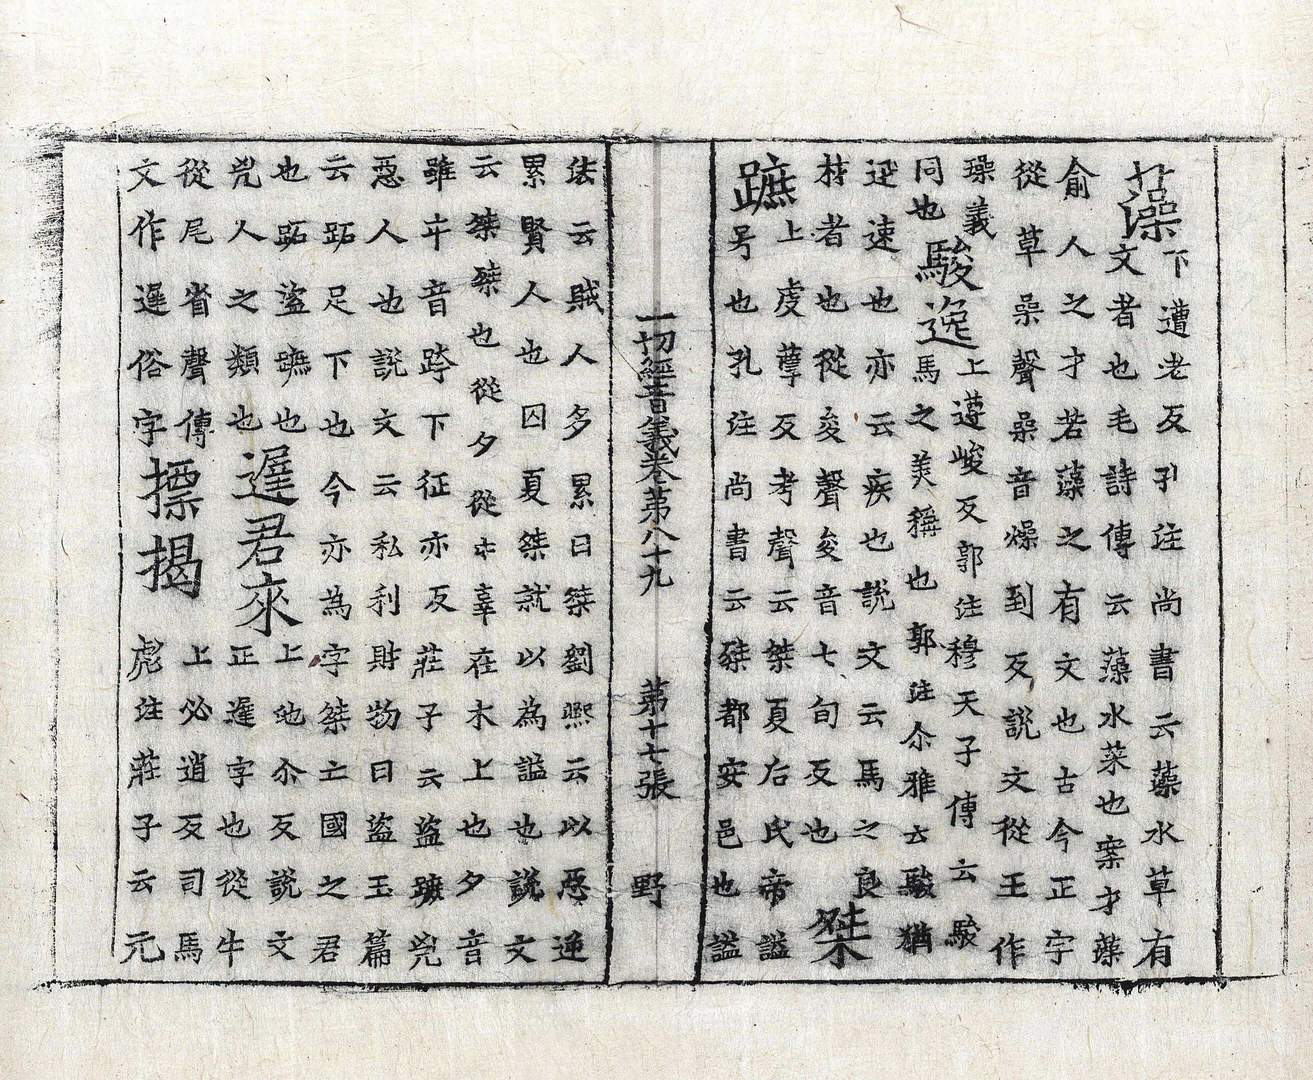 藻
下遭老反孔注尚書云藻水草有
文者也毛詩傳云藻水菜也案才藻
俞人之才若藻之有文也古今正字
從草喿聲喿音燥到反說文從玉作
璪義
同也
駿逸
上遵峻反郭注穆天子傳云駿
馬之美稱也郭注尒雅云駿猶
迅速也亦云疾也說文云馬之良
材者也從夋聲夋音七旬反也
桀
蹠
上虔孽反考聲云桀夏后氏帝謚
号也孔注尚書云桀都安邑也謚
一切經音義卷第八十九 第十七張 野
法云賊人多累曰桀劉熙云以惡逆
累賢人也囚夏桀就以為謚也說文
云桀桀也從夕從㐄辜在木上也夕音
雖㐄音跨下征亦反莊子云盜蹠兇
惡人也說文云私利財物曰盜玉篇
云跖足下也今亦為字桀亡國之君
也跖盜蹠也
兇人之類也
遟君來
上地尒反說文
正遲字也從牛
從尾省聲傳
文作遲俗字
摽揭
上必逍反司馬
彪注莊子云元